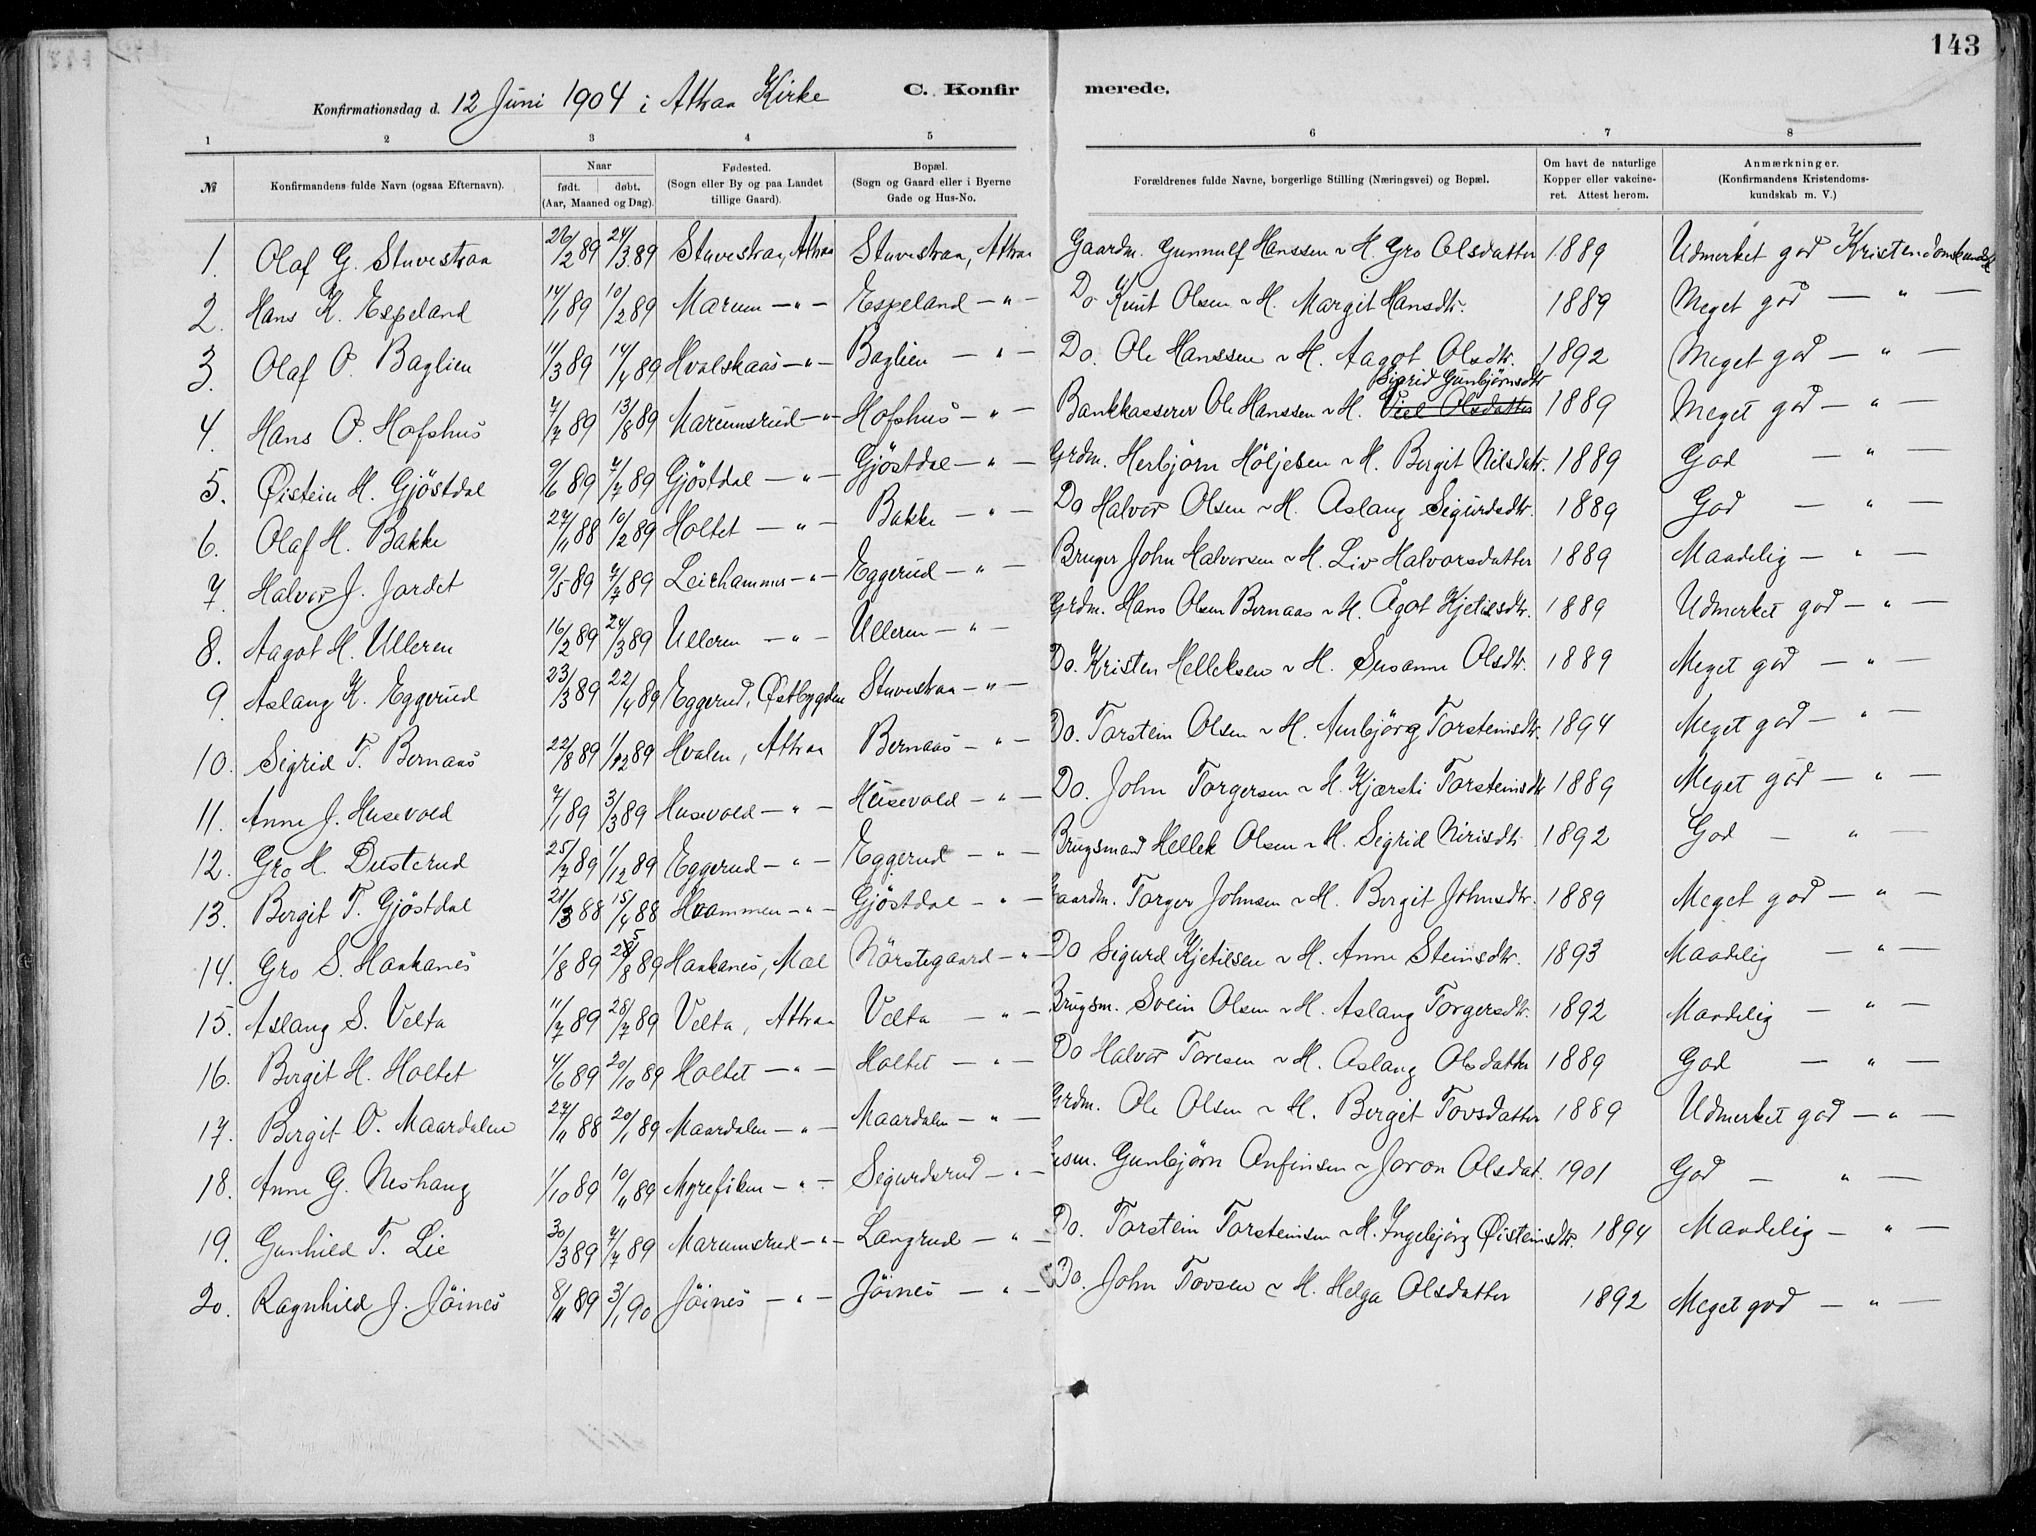 143
Konfirmationsdag d. 12 Juni 1904 i Attraa Kirke C. Konfirmerede.
1 2 3 4 5 6 7 8
№ Konfirmandens fulde Navn (ogsaa Efternavn). Naar født. døbt. (Aar, Maaned og Dag). Fødested. (Sogn eller By og paa Landet tillige Gaard). Bopæl. (Sogn og Gaard eller i Byerne Gade og Hus-No. Forældrenes fulde Navne, borgerlige Stilling (Næringsvei) og Bopæl. Om havt de naturlige Kopper eller vakcineret. Attest herom. Anmærkninger. (Konfirmandens Kristendomskundskab m. V.)
1. Olaf G. Stuvestraa 26/2 89 24/3 89 Stuvestraa, Attraa Stuvestraa, Attraa Gaardm. Gunnulf Hanssen & H. Gro Olsdatter 1889 Udmerket god Kristendomskundsk
2. Hans K. Espeland 14/1 89 10/2 89 Marum — " — Espeland — " — Do Knut Olsen & H. Margit Hansdtr. 1889 Meget god — " —
3. Olaf O. Baglien 11/3 89 14/4 89 Hvalskaas — " — Baglien — " — Do. Ole Hanssen & H. Aagot Olsdtr. 1892 Meget god — " —
4. Hans O. Hofshus 7/7 89 13/8 89 Marumsrud — " — Hofshus — " — Bankkasserer Ole Hanssen & H. Sigrid Gunbjørnsdtr 1889 Meget god — " —
5. Øistein H. Gjöstdal 9/6 89 7/7 89 Gjöstdal — " — Gjöstdal — " — Grdm. Herbjörn Höljesen & H. Bergit Nilsdatr. 1889 God — " —
6. Olaf H. Bakke 27/11 88 10/2 89 Holtet — " — Bakke — " — Do Halvor Olsen & H. Aslaug Sigurdsdtr. 1889 God — " —
7. Halvor J. Jordet 9/5 89 7/7 89 Leirhammer — " — Eggerud — " — Bruger John Halvorsen & H. Liv Halvorsdatter 1889 Maadelig — " —
8. Aagot H. Ulleren 16/2 89 24/3 89 Ulleren — " — Ulleren — " — Grdm. Hans Olsen Bernaas & H. Ågot Kjetilsdtr. 1889 Udmerket god — " —
9. Aslaug K. Eggerud 23/3 89 22/4 89 Eggerud, Østbygden Stuvestraa — " — Do. Kristen Helleksen & H. Susanne Olsdtr. 1889 Meget god — " —
10. Sigrid T. Bernaas 22/8 89 1/12 89 Hvalen, Attraa Bernaas — " — Do. Torstein Olsen & H. Aunbjörg Torsteinsdtr. 1894 Meget god — " —
11. Anne J. Husevold 7/1 89 3/3 89 Husevold — " — Husevold — " — Do. John Torgersen & H. Kjærsti Torsteinsdtr 1889 Meget god — " —
12. Gro H. Dusterud 25/7 89 1/12 89 Eggerud — " — Eggerud — " — Brugsmand Hellek Olsen & H. Sigrid Nirisdtr 1892 God — " —
13. Bergit T. Gjöstdal 21/3 88 15/4 88 Hvammen — " — Gjöstdal — " — Gaardm. Torger Johnsen & H. Bergit Johnsdtr. 1889 Meget god — " —
14. Gro S. Haakanes 1/8 89 25/8 89 Haakanes, Mæl Nörstegaard — " — Do Sigurd Kjetilsen & H. Anne Steinsdtr. 1893 Maadelig — " —
15. Aslaug S. Velta 11/7 89 28/7 89 Velta, Attraa Velta — " — Brugsm. Svein Olsen & H. Aslaug Torgersdtr. 1892 Maadelig — " —
16. Bergit H. Holtet 4/6 89 20/10 89 Holtet — " — Holtet — " — Do Halvor Toresen & H. Aslaug Olsdatter 1889 God — " —
17. Bergit O. Maardalen 27/11 88 20/1 89 Maardalen — " — Maardalen — " — Grdm. Ole Olsen & H. Bergit Tovsdatter 1889 Udmerket god — " —
18. Anne G. Neshaug 1/10 89 10/11 89 Myrefiken — " — Sigurdsrud — " — Gunbjörn Anfinsen & Joron Olsdat. 1901 God — " —
19. Gunhild T. Lie 30/3 89 7/7 89 Marumsrud — " — Langrud — " — Do. Torstein Torsteinsen & H. Ingebjörg Øisteinsdtr. 1894 Maadelig — " —
20. Ragnhild J. Jöines 8/11 89 3/1 90 Jöines — " — Jöines — " — Do. John Tovsen & H. Helga Olsdatter 1892 Meget god — " —